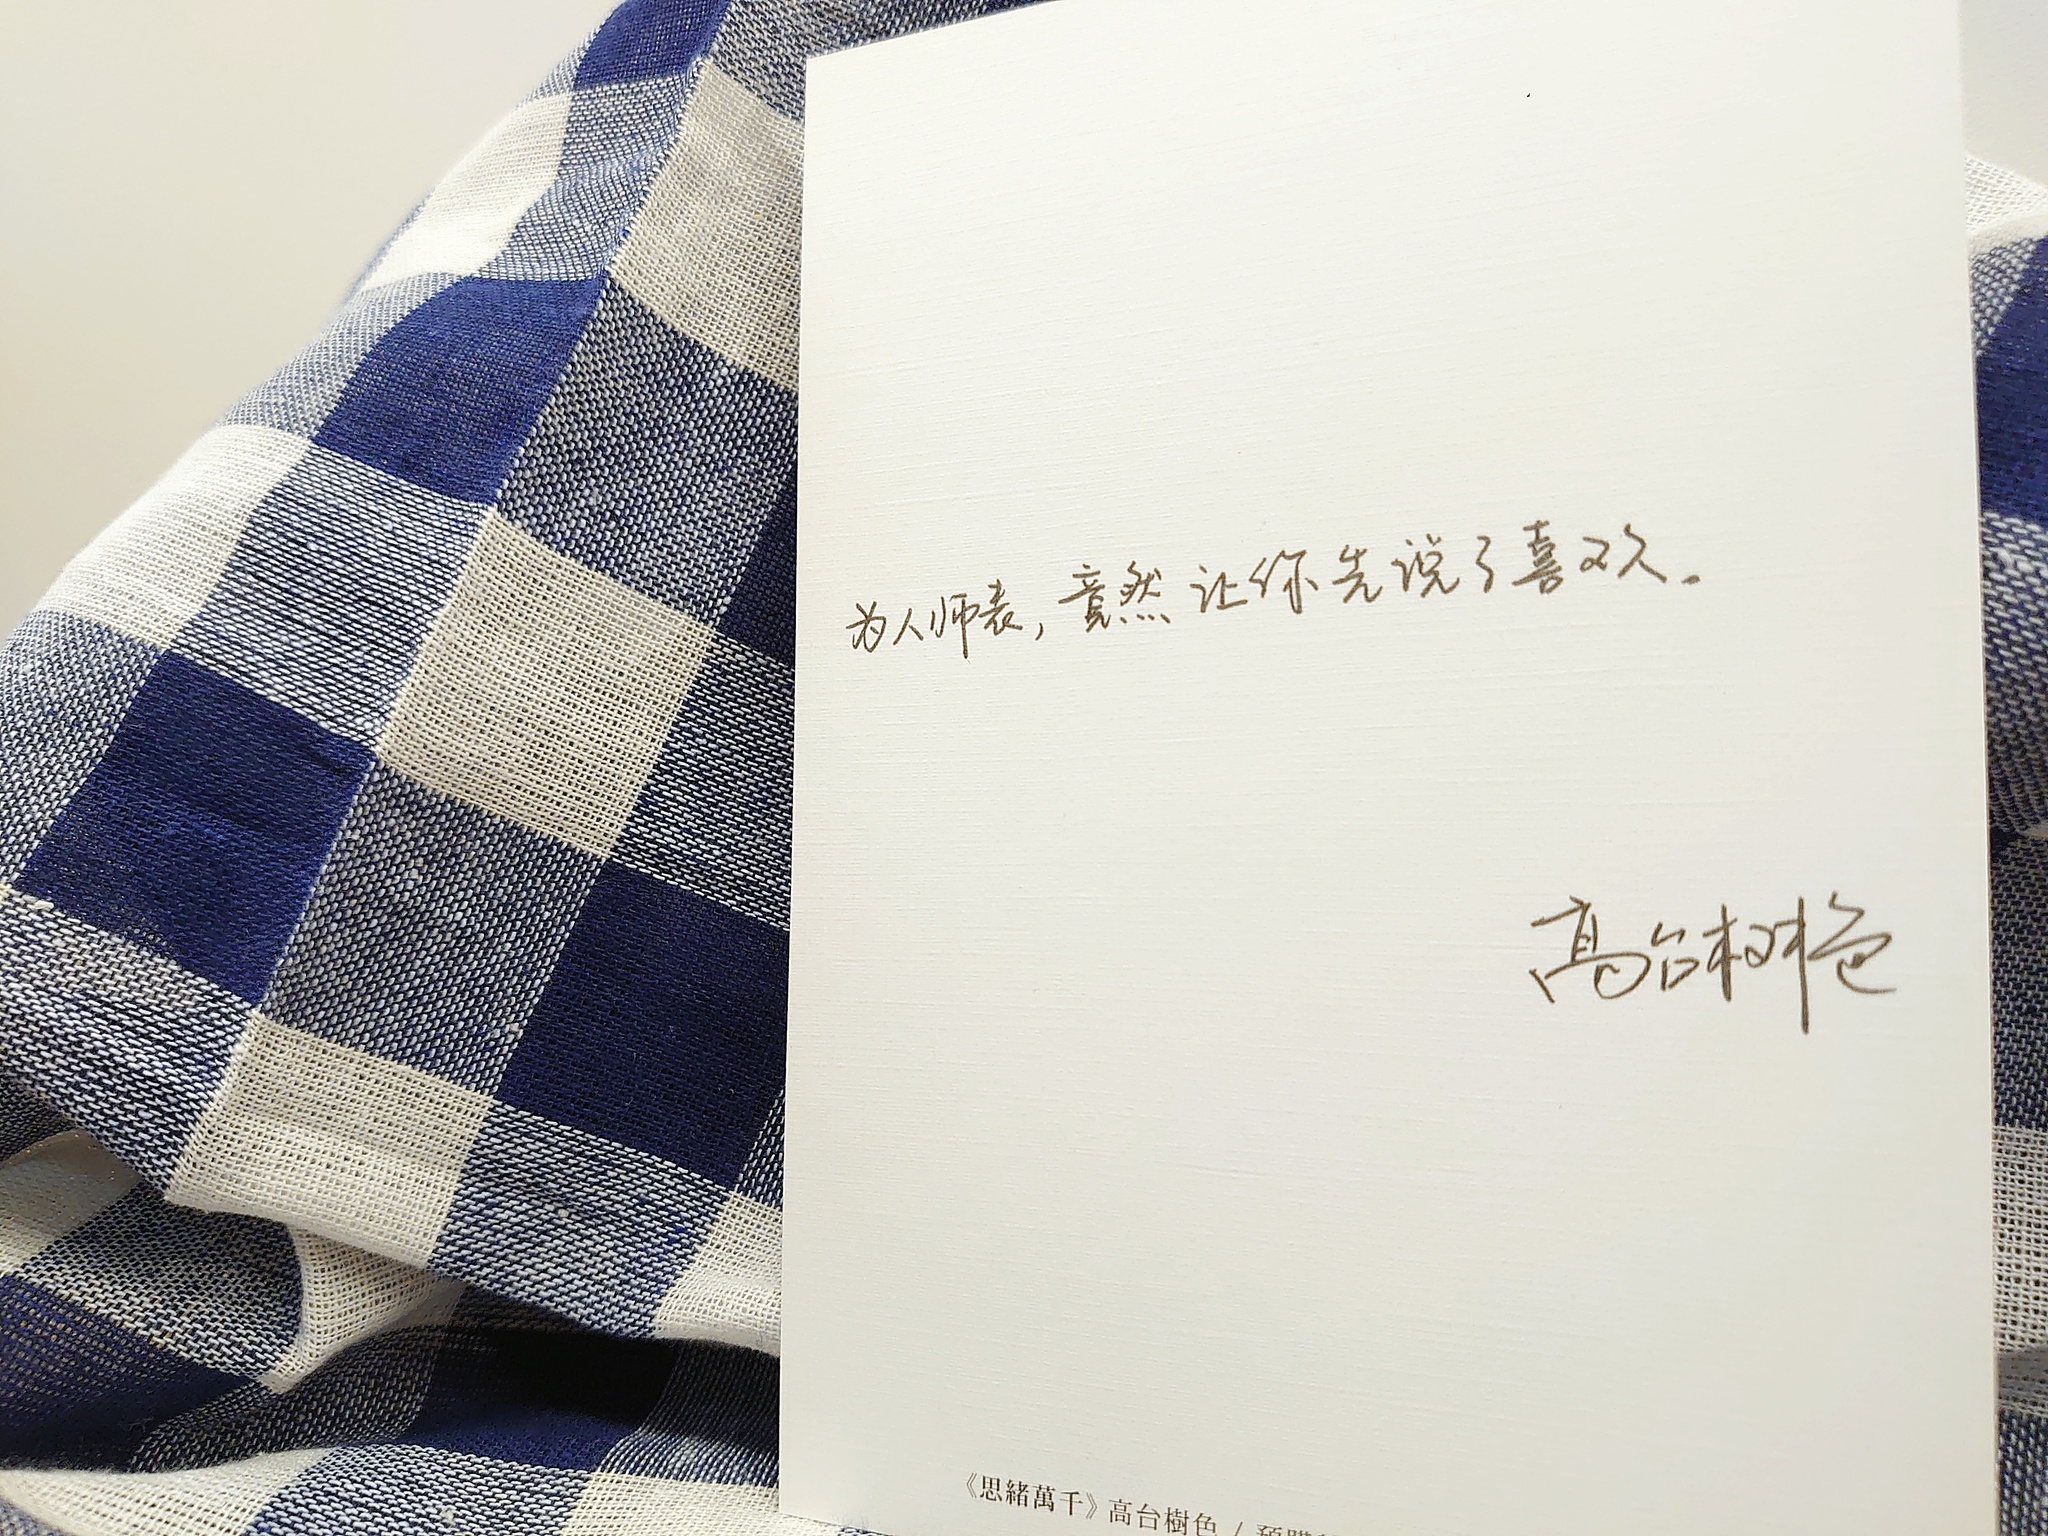 为人师表，竟然让你先说了喜欢。
高台树色
《思緒萬千》高台樹色 / 預購